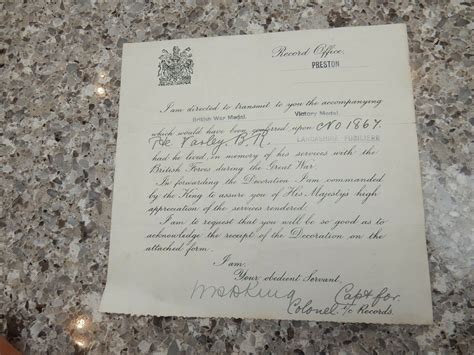 Record Office,
PRESTON
I am directed to transmit to you the accompanying
British War Medal. Victory Medal.
which would have been conferred upon No 1867.
Pte Varley B. H. LANCASHIRE FUSILIERS
had he lived, in memory of his services with the
British Forces during the Great War.
In forwarding the Decoration I am commanded
by the King to assure you of His Majesty's high
appreciation of the services rendered.
I am to request that you will be so good as to
acknowledge the receipt of the Decoration on the
attached form.
I am,
Your obedient Servant,
Capt for
Colonel i/c Records.